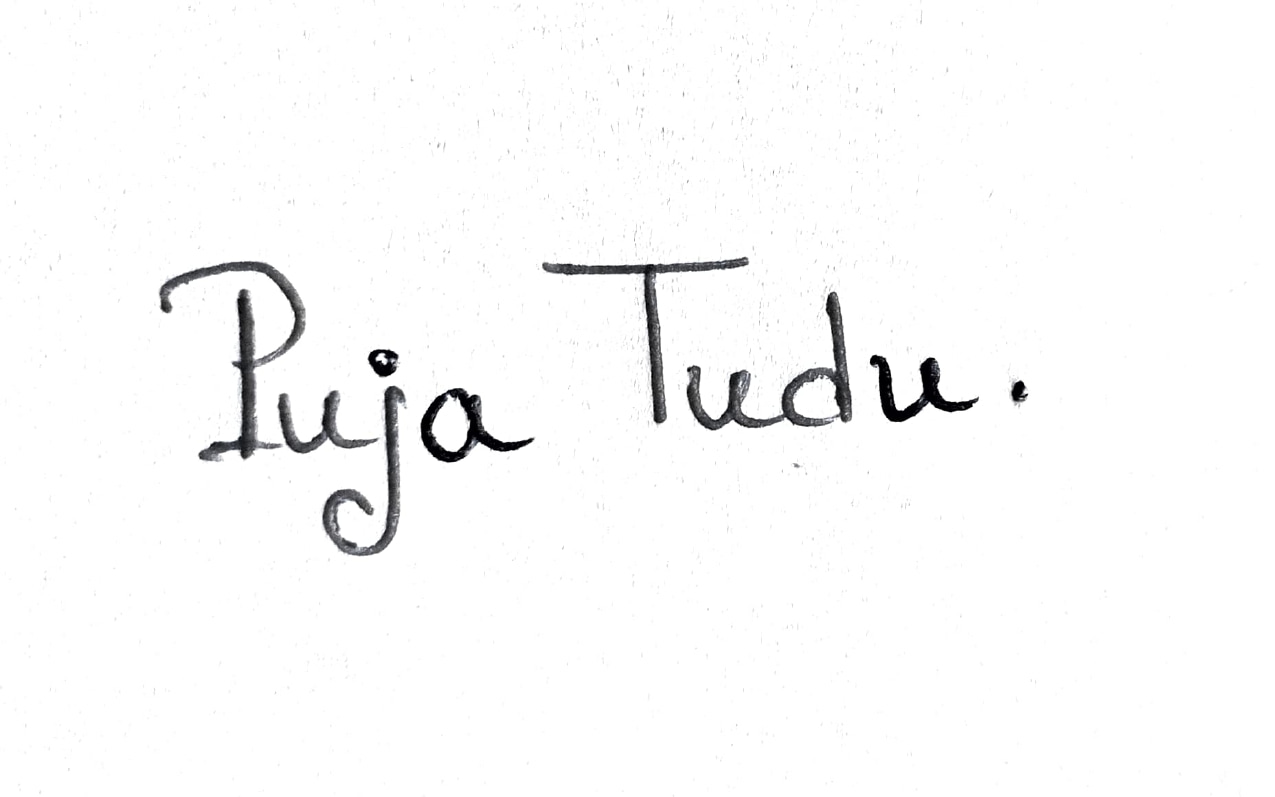 Puja Tudu.